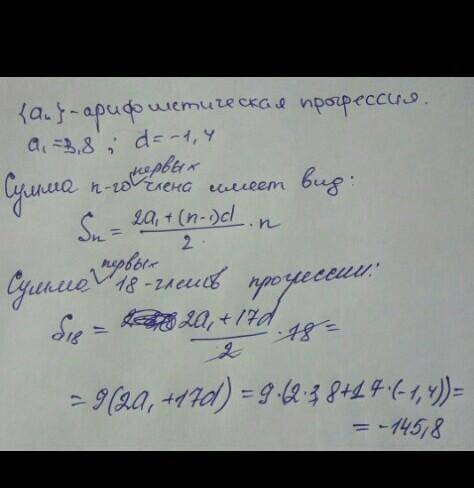 {aₙ} - арифметическая прогрессия.
a₁ = 3,8 ; d = -1,4
Сумма первых n-го члена имеет вид:
Sₙ = (2a₁ + (n-1)d)/2 · n
Сумма первых 18-членов прогрессии:
S₁₈ = (2a₁ + 17d)/2 · 18 =
= 9(2a₁ + 17d) = 9·(2·3,8 + 17·(-1,4)) =
= -145,8